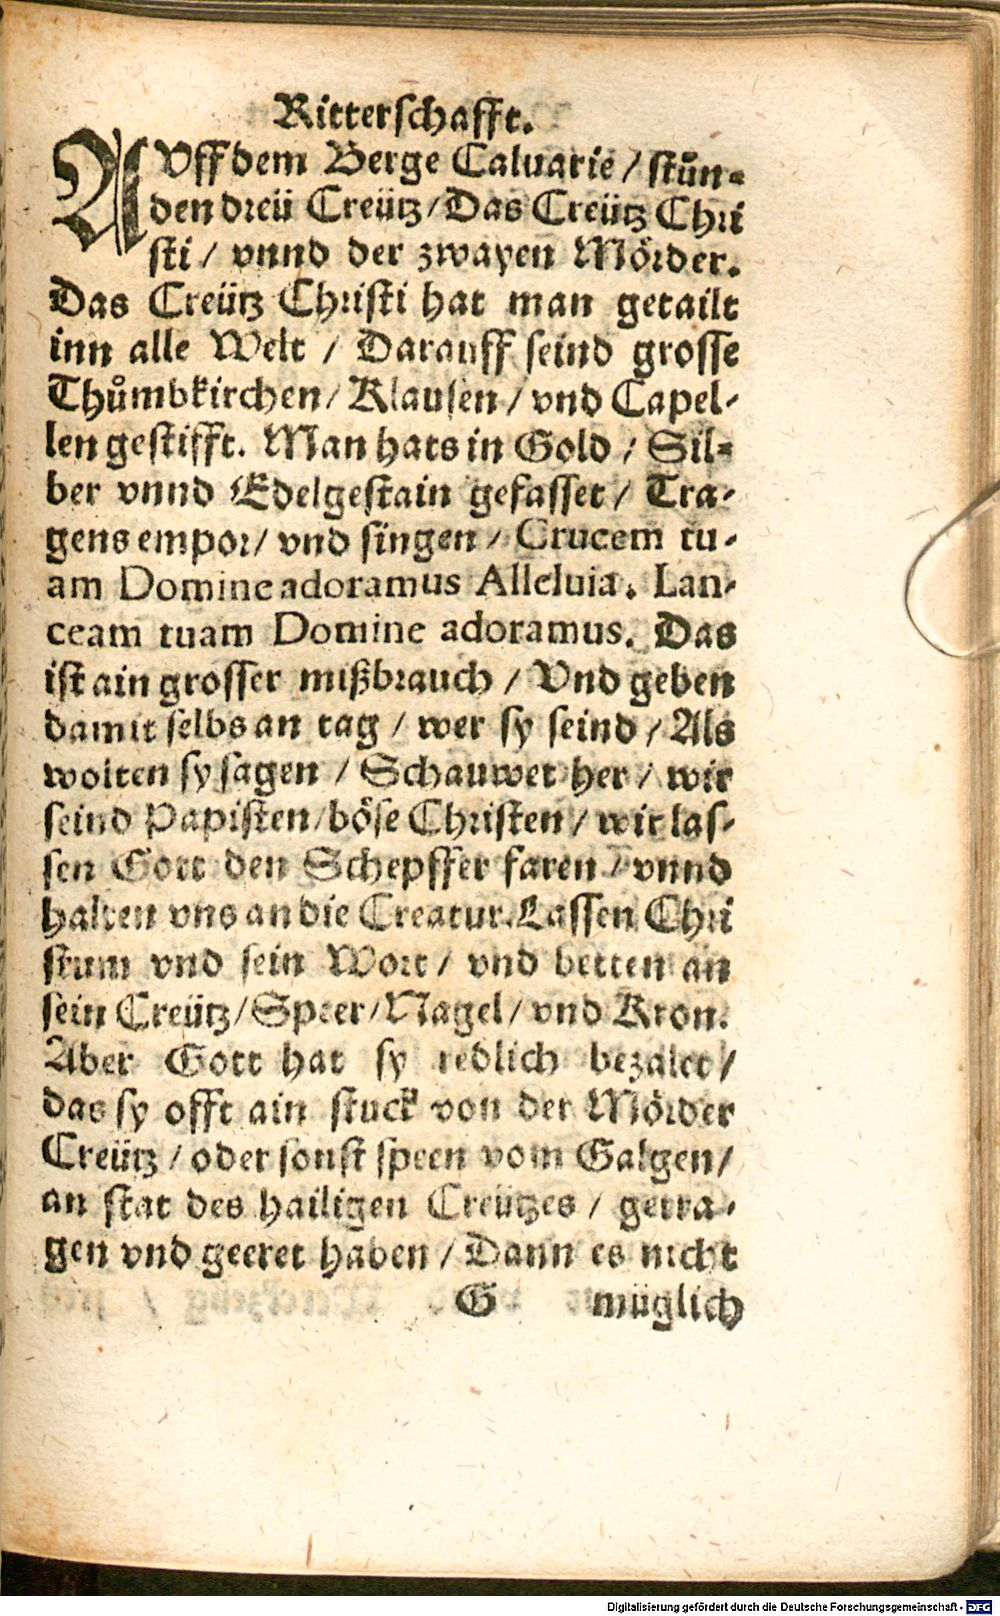 Ritterschafft.
AVff dem Berge Caluarie / stůn-
den dreü Creütz / Das Creütz Chri
sti / vnnd der zwayen Mörder.
Das Creütz Christi hat man getailt
inn alle Welt / Darauff seind grosse
Thůmbkirchen / Klausen / vnd Capel-
len gestifft. Man hats in Gold / Sil-
ber vnnd Edelgestain gefasset / Tra-
gens empor / vnd singen / Crucem tu-
am Domine adoramus Alleluia. Lan-
ceam tuam Domine adoramus. Das
ist ain grosser mißbrauch / Vnd geben
damit selbs an tag / wer sy seind / Als
wolten sy sagen / Schauwet her / wir
seind Papisten / böse Christen / wir las-
sen Gott den Schepffer faren / vnnd
halten vns an die Creatur. Lassen Chri
stum vnd sein Wort / vnd betten an
sein Creütz / Speer / Nagel / vnd Kron.
Aber Gott hat sy redlich bezalet /
das sy offt ain stuck von der Mörder
Creütz / oder sonst speen vom Galgen /
an stat des hailigen Creützes / getra-
gen vnd geeret haben / Dann es nicht
G müglich
Digitalisierung gefördert durch die Deutsche Forschungsgemeinschaft - DFG